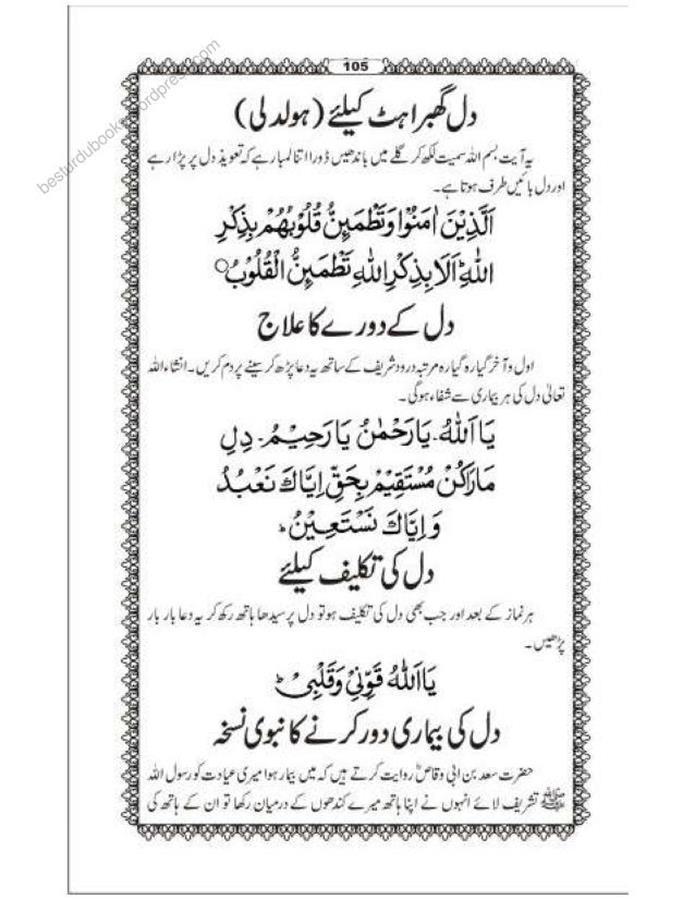 105
دل گھبراہٹ کیلئے (ہولدلی)
یہ آیت بسم اللہ سمیت لکھ کر گلے میں باندھیں ڈورا اتنا لمبا رہے کہ تعویذ دل پر پڑا رہے
اور دل بائیں طرف ہوتا ہے۔
اَلَّذِیْنَ اٰمَنُوْا وَتَطْمَئِنُّ قُلُوْبُهُمْ بِذِكْرِ
اللّٰهِؕ اَلَا بِذِكْرِ اللّٰهِ تَطْمَئِنُّ الْقُلُوْبُ○
دل کے دورے کا علاج
اول و آخر گیارہ گیارہ مرتبہ درود شریف کے ساتھ یہ دعا پڑھ کر سینے پر دم کریں۔ انشاء اللہ
تعالیٰ دل کی ہر بیماری سے شفاء ہوگی۔
یَا اَللّٰهُ۔ یَا رَحْمٰنُ یَا رَحِیْمُ۔ دِلِ
مَارَاکُنْ مُسْتَقِیْمْ بِحَقِّ اِیَّاكَ نَعْبُدُ
وَ اِیَّاكَ نَسْتَعِیْنُؕ
دل کی تکلیف کیلئے
ہر نماز کے بعد اور جب بھی دل کی تکلیف ہو تو دل پر سیدھا ہاتھ رکھ کر یہ دعا بار بار
پڑھیں۔
یَا اَللّٰهُ قَوِّنِیْ وَقَلْبِیْؕ
دل کی بیماری دور کرنے کا نبوی نسخہ
حضرت سعد بن ابی وقاصؓ روایت کرتے ہیں کہ میں بیمار ہوا میری عیادت کو رسول اللہ
ﷺ تشریف لائے انہوں نے اپنا ہاتھ میرے کندھوں کے درمیان رکھا تو ان کے ہاتھ کی
besturdubooks.wordpress.com